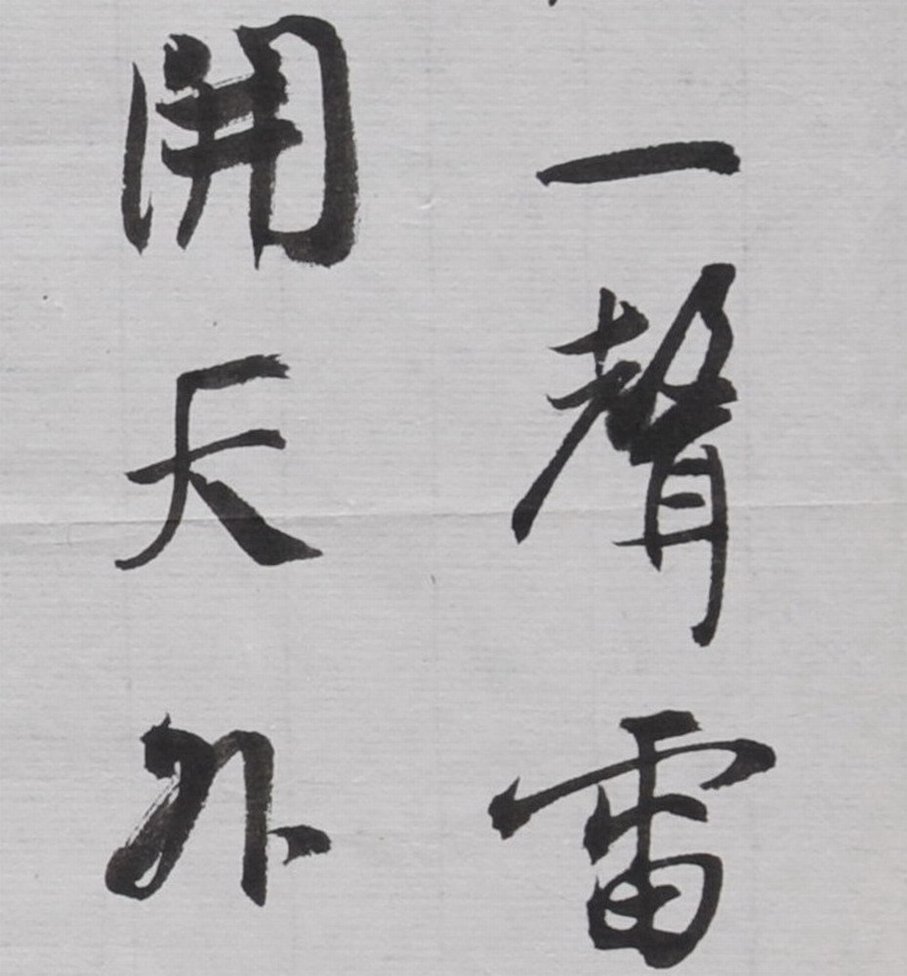 一聲雷
開天外